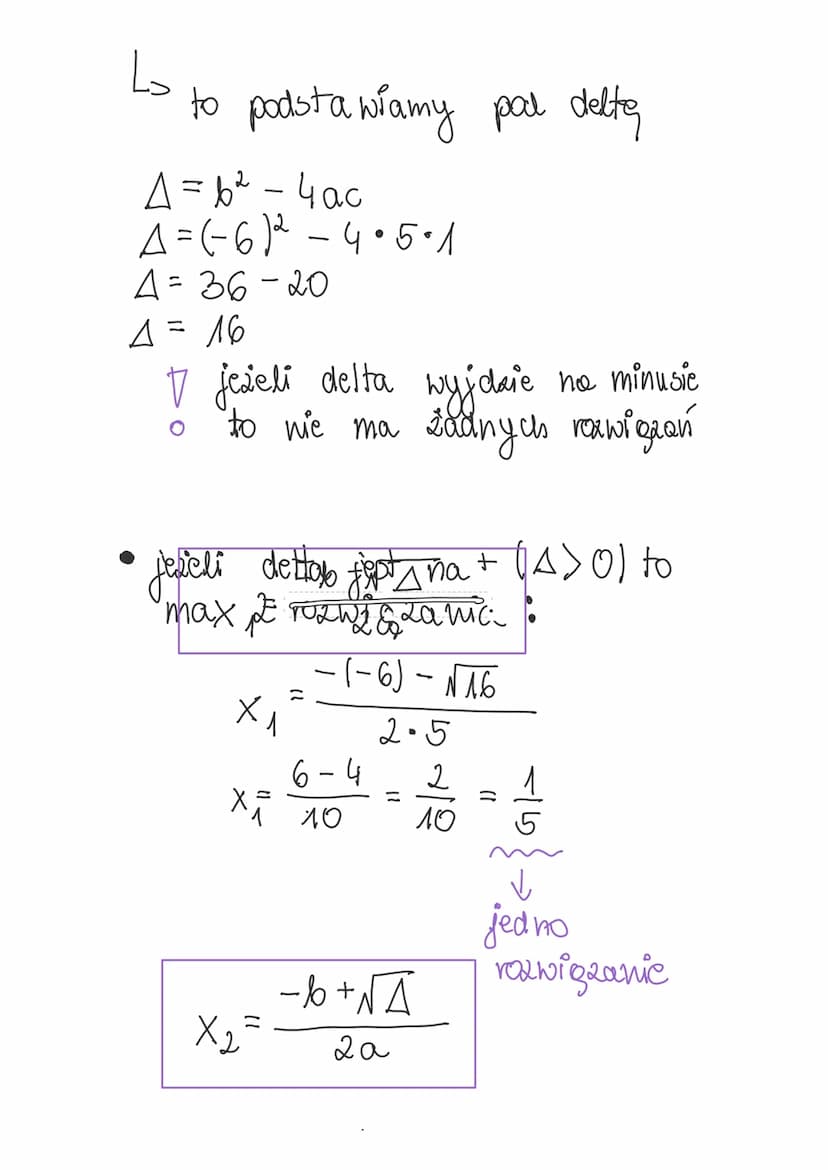 ↳ to podstawiamy pod deltę
Δ = b² - 4ac
Δ = (-6)² - 4 • 5 • 1
Δ = 36 - 20
Δ = 16
! jeżeli delta wyjdzie na minusie
to nie ma żadnych rozwiązań
• jeżeli delta jest na + (Δ > 0) to
max 2 rozwiązania:
x₁ = \frac{-(-6) - √16}{2 • 5}
x₁ = \frac{6 - 4}{10} = \frac{2}{10} = \frac{1}{5}
↓
jedno
rozwiązanie
x₂ = \frac{-b + √Δ}{2a}